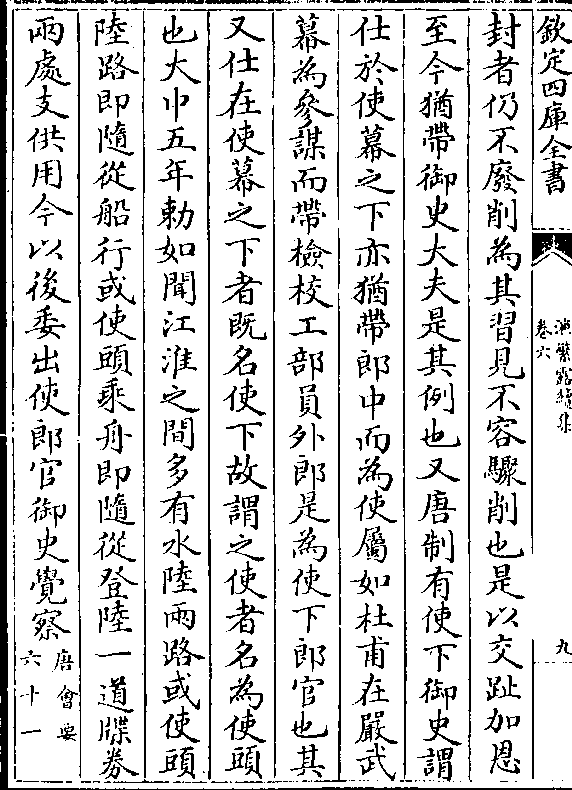 欽定四庫全書
演繁露續集
卷六
九
封者仍不廢削為其習見不容驟削也是以交趾加恩
至今猶帶御史大夫是其例也又唐制有使下御史謂
仕於使幕之下亦猶帶郎中而為使屬如杜甫在嚴武
幕為參謀而帶檢校工部員外郎是為使下郎官也其
又仕在使幕之下者既名使下故謂之使者名為使頭
也大中五年勅如聞江淮之間多有水陸兩路或使頭
陸路即隨從船行或使頭乘舟即隨從登陸一道牒券
兩處支供用今以後委出使郎官御史覺察
唐會要
六十一